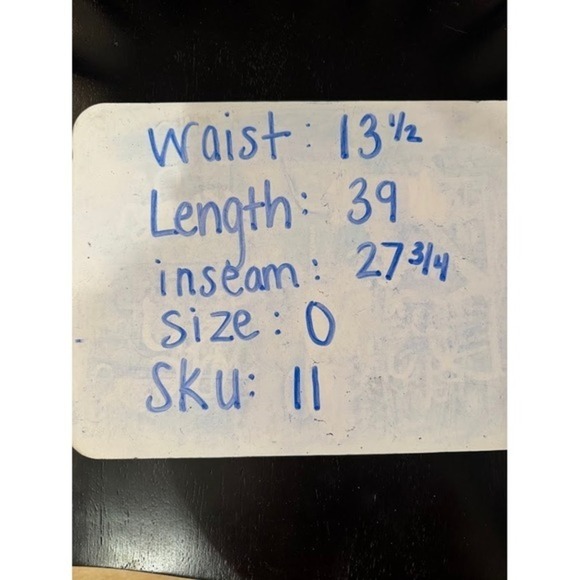 Waist: 13 1/2
Length: 39
inseam: 27 3/4
Size: 0
SKU: 11